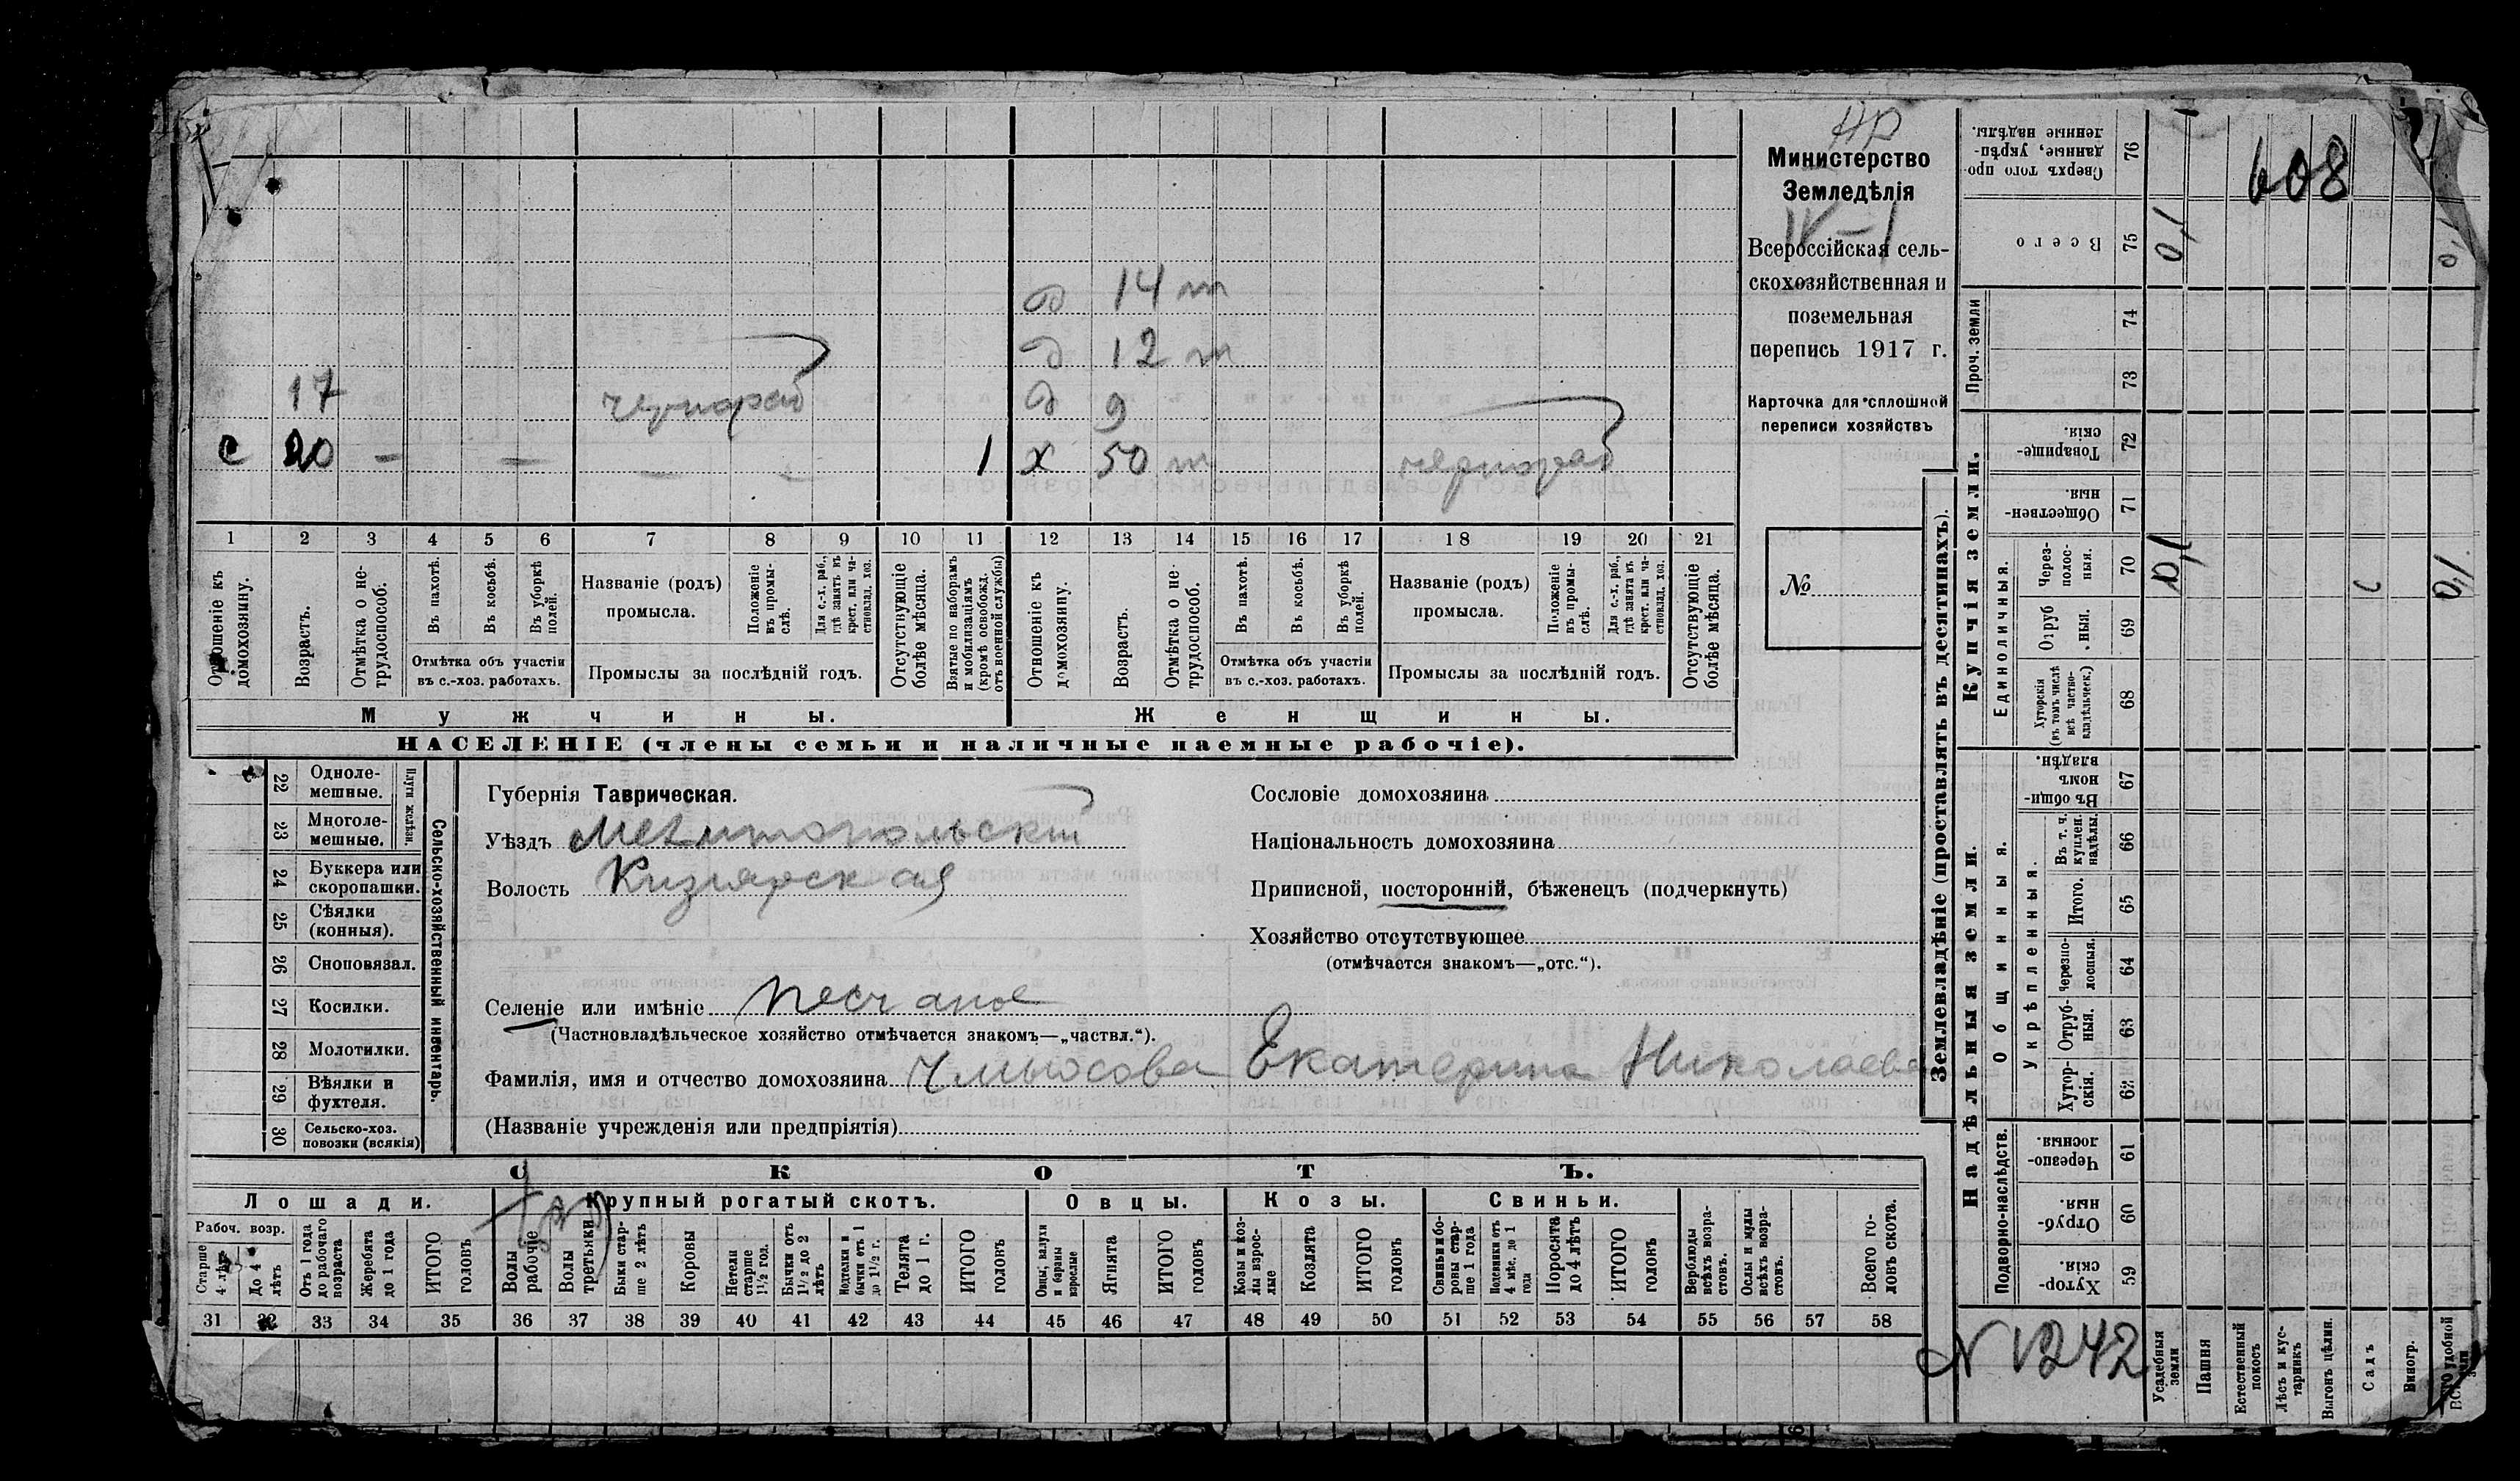 14 т
12 т
17 чернораб 9
с 20 – – – – 1 х 50 т чернораб
1 2 3 4 5 6 7 8 9 10 11 12 13 14 15 16 17 18 19 20 21
Отношеніе къ домохозяину.
Возрастъ.
Отмѣтка о не-трудоспособ.
Въ пахотѣ.
Въ косьбѣ.
Въ уборкѣ полей.
Отмѣтка объ участіи
въ с.-хоз. работахъ.
Названіе (родъ)
промысла.
Положеніе въ промы-слѣ.
Для с.-х. раб., гдѣ занятъ въ крест. или ча-стновлад. хоз.
Промыслы за послѣдній годъ.
Отсутствующіе болѣе мѣсяца.
Взятые по наборамъ и мобилизаціямъ (кромѣ освобожд. отъ военной службы)
Отношеніе къ домохозяину.
Возрастъ.
Отмѣтка о не-трудоспособ.
Въ пахотѣ.
Въ косьбѣ.
Въ уборкѣ полей.
Отмѣтка объ участіи
въ с.-хоз. работахъ.
Названіе (родъ)
промысла.
Положеніе въ промы-слѣ.
Для с.-х. раб., гдѣ занята въ крест. или ча-стновлад. хоз.
Промыслы за послѣдній годъ.
Отсутствующіе болѣе мѣсяца.
Мужчины.
Женщины.
НАСЕЛЕНІЕ (члены семьи и наличные наемные рабочіе).
Министерство
Земледѣлія
IV–1
Всероссійская сель-
скохозяйственная и
поземельная
перепись 1917 г.
Карточка для сплошной
переписи хозяйствъ
№
22 Одноле-мешные.
23 Многоле-мешные.
Плуги желѣзн.
24 Буккера или скоропашки.
25 Сѣялки (конныя).
26 Сноповязал.
27 Косилки.
28 Молотилки.
29 Вѣялки и фухтеля.
30 Сельско-хоз. повозки (всякія)
Сельско-хозяйственный инвентарь.
Губернія Таврическая.
Уѣздъ Мелитопольскій
Волость Кизіярская
Селеніе или имѣніе Песчаное
(Частновладѣльческое хозяйство отмѣчается знакомъ—„частвл.“).
Фамилія, имя и отчество домохозяина Екатерина Николаева
(Названіе учрежденія или предпріятія)
Сословіе домохозяина
Національность домохозяина
Приписной, посторонній, бѣженецъ (подчеркнуть)
Хозяйство отсутствующее
(отмѣчается знакомъ—„отс.“).
СКОТЪ.
Лошади. Крупный рогатый скотъ. Овцы. Козы. Свиньи.
Рабоч. возр.
Старше 4 лѣтъ
До 4 лѣтъ
Отъ 1 года до рабочаго возраста
Жеребята до 1 года
ИТОГО головъ
Волы рабочіе
Волы третьяки
Быки стар-ше 2 лѣтъ
Коровы
Нетели старше 1½ год.
Бычки отъ 1½ до 2 лѣтъ
Подтелки и бычки отъ 1 до 1½ г.
Телята до 1 г.
ИТОГО головъ
Овцы, валухи и бараны взрослые
Ягнята
ИТОГО головъ
Козы и коз-лы взрос-лые
Козлята
ИТОГО головъ
Свиньи и бо-ровы стар-ше 1 года
Подсвинки отъ 4 мѣс. до 1 года
Поросята до 4 лѣтъ
ИТОГО головъ
Верблюды всѣхъ возра-стовъ.
Ослы и мулы всѣхъ возра-стовъ.
Всего го-ловъ скота.
31 32 33 34 35 36 37 38 39 40 41 42 43 44 45 46 47 48 49 50 51 52 53 54 55 56 57 58
Землевладѣніе (проставлять въ десятинахъ).
Купчія земли.
Надѣльныя земли.
Проч. земли
Единоличныя.
Общинныя.
Укрѣпленныя.
Подворно-наслѣдств.
76 Сверхъ того про-данные, укрѣп-ленные надѣлы.
75 Всего
74
73
72 Товарище-скія.
71 Обществен-ныя.
70 Через-полос-ныя.
69 Отруб-ныя.
68 Хуторскія (въ томъ числѣ всѣ частно-владѣльческ.)
67 Въ общи-номъ владѣн.
66 Въ т. ч. куплен. надѣлы.
65 Итого.
64 Черезпо-лосныя.
63 Отруб-ныя.
62 Хутор-скія.
61 Черезпо-лосныя.
60 Отруб-ныя.
59 Хутор-скія.
608
N 1242
Усадебныя земли
Пашня
Естественный покосъ
Лѣсъ и кус-тарникъ
Выгонъ цѣлин.
Садъ
Виногр.
удобной